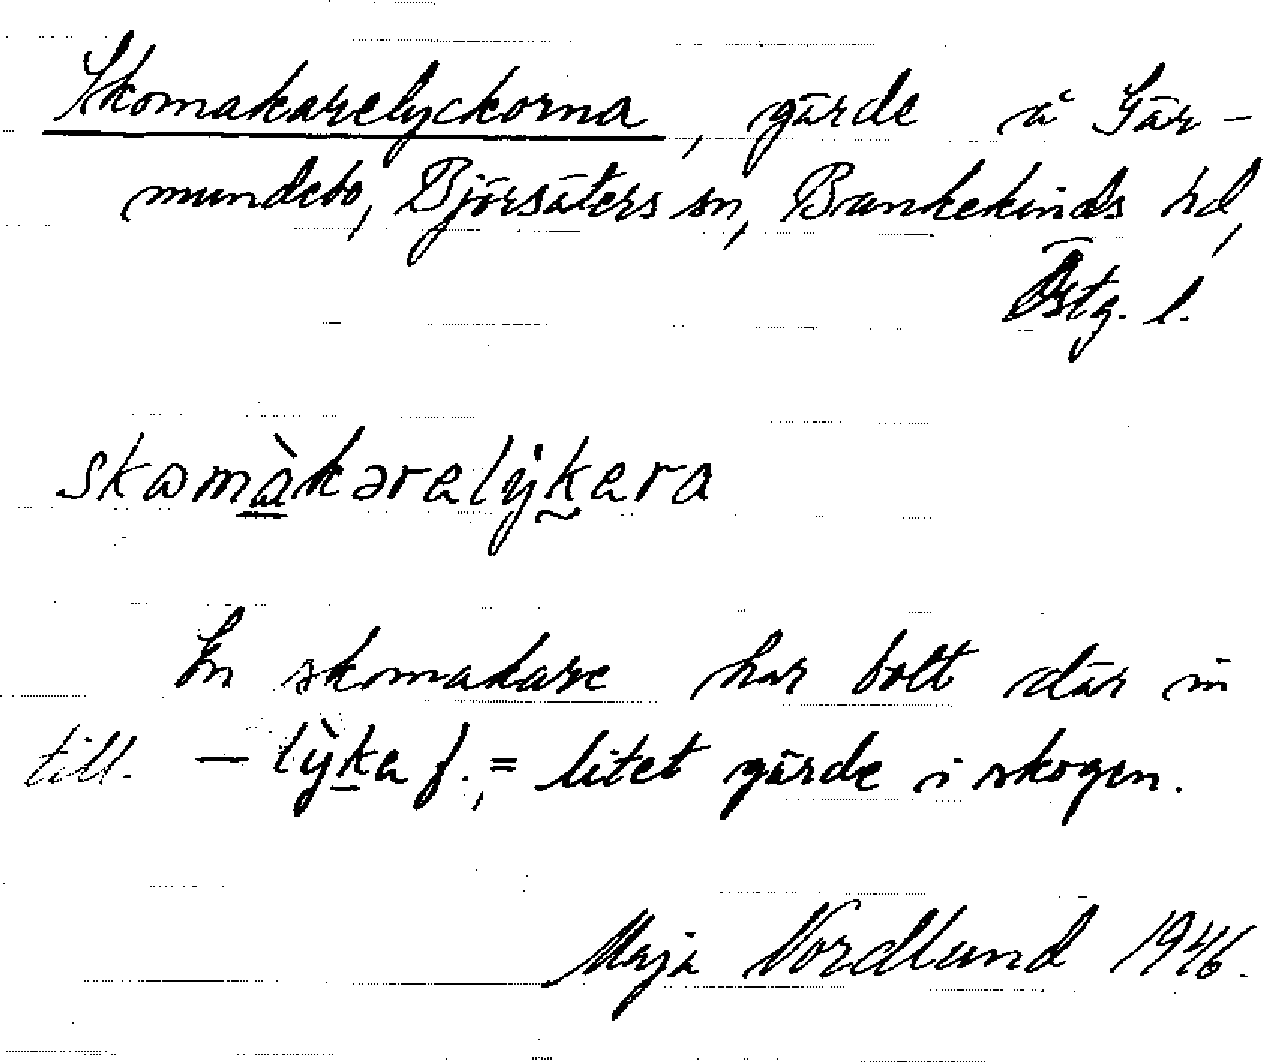 Skomakarelyckorna, gärde å Gär-
mundebo, Björsäters sn, Bankekinds hd,
Östg. l.
skomàkarelỳkera
En skomakare har bott där in
till. – lỳka f., = litet gärde i skogen.
Maja Nordlund 1946.